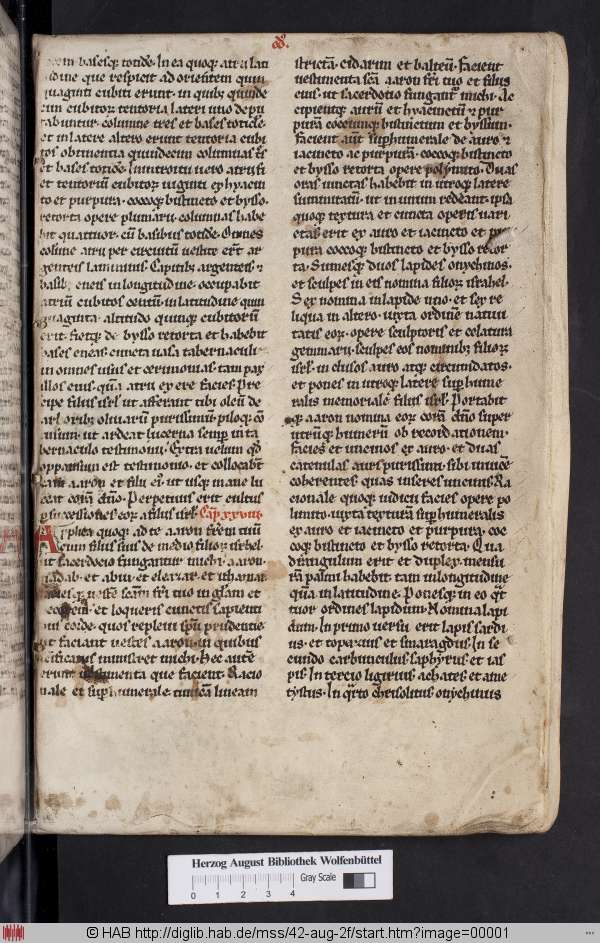 decem basesq; totidē. In ea quoq; atrii lati
tudine que respicit ad orientem quin
quaginta cubiti erunt. in quib; quinde
cim cubitoꝝ tentoria lateri uno depu
tabuntur. columne tres et bases totidē.
et in latere altero erunt tentoria cubi
tos obtinentia quindecim columnas t̄s
et bases totidē. In introitu uero atrii fi
et tentoriū cubitoꝝ uiginti ex hyacin
to et purpura. coccoq; bistincto et bysso.
retorta opere plumarii. columnas habe
bit quattuor. cū basibus totidē. Omnes
colūne atrii per circuitū uestite er̄t ar
genteis laminis. Capitib; argenteis ⁊
basib; eneis. in longitudine occupabit
atriū cubitos centū. in latitudine quin
quaginta. altitudo quinq; cubitorū
erit. fietq; de bysso retorta et habebit
bases eneas. cuncta uasa tabernaculi
in omnes usus et cerimonias. tam pax
illos eius. quā atrii ex ere facies. Pre
cipe filiis isrl' ut afferant tibi oleū de
arboribꝫ oliuarū purissimū. piloq; cō
tusum. ut ardeat lucerna semp̄ in ta
bernaculo testimonii. Extra uelum qd̄
oppansum est testimonio. et collocab̄t
eam aaron et filii ei'. ut usq; mane lu
ceat corā dn̄o. Perpetuus erit cultus
p successiones eoꝝ a filiis isrl'. Cap̄. xxviii.
Applica quoq; ad te aaron fr̄em tuū
cum filiis suis de medio filioꝝ isrhel.
ut sacerdotio fungantur michi. aaron.
nadab. et abiu. et eleazar. et ithamar
faciesq; uestē sc̄am fr̄i tuo in gl̄am et
decorem. et loqueris cunctis sapienti
bus corde. quos repleui sp̄u prudentie.
ut faciant uestes aaron. in quibus
sc̄ificatus ministret michi. Hec autē
erunt uestimenta que facient. Racio
nale et sup̄humerale. tunicā lineam
strictā. cidarim et balteū. facient
uestimenta sc̄a aaron fr̄i tuo et filiis
eius. ut sacerdotio fungant̄ michi. Ac
cipientq; aurū et hyacinctū ⁊ pur
purā coccumq; bistinctum et byssum.
facient aūt sup̄humerale de auro ⁊
iacincto ac purpura. coccoq; bistincto
et bysso retorta opere polymito. Duas
oras iunctas habebit in utroq; latere
summitatū. ut in unum redeant. ipsa
quoq; textura et cuncta operis uari
etas erit ex auro et iacincto et pur
pura coccoq; bistincto et bysso retor
ta. Sumesq; duos lapides onychinos.
et sculpes in eis nomina filioꝝ israhel.
Sex nomina in lapide uno. et sex re
liqua in altero. iuxta ordinē natiui
tatis eoꝝ. opere sculptoris et celatura
gemmarii. sculpes eos nominibꝫ filioꝝ
isrl'. inclusos auro atq; circumdatos.
et pones in utroq; latere sup̄hume
ralis memoriale filiis isrl'. Portabit
q; aaron nomina eoꝝ corā dn̄o super
utrūq; humerū ob recordationem.
facies et uncinos ex auro. et duas
catenulas auri purissimi. sibi inuicē
coherentes. quas inseres uncinis. Ra
cionale quoq; iudicii facies opere po
limito. iuxta texturā sup̄humeralis
ex auro et iacincto et purpura. coc
coq; bistincto et bysso retorta. Qua
drangulum erit et duplex. mensu
rā palmi habebit. tam in longitudine
quā in latitudine. Ponesq; in eo qt̄
tuor ordines lapidum. Nomina lapi
dum. In primo uersu erit lapis sardi
us. et topazius et smaragdus. In se
cundo carbunculus saphyrus et ias
pis. In tercio ligirius achates et ame
tystus. In qr̄to chrisolitus onychinus
Herzog August Bibliothek Wolfenbüttel
Gray Scale
0 1 2 3 4
© HAB http://diglib.hab.de/mss/42-aug-2f/start.htm?image=00001